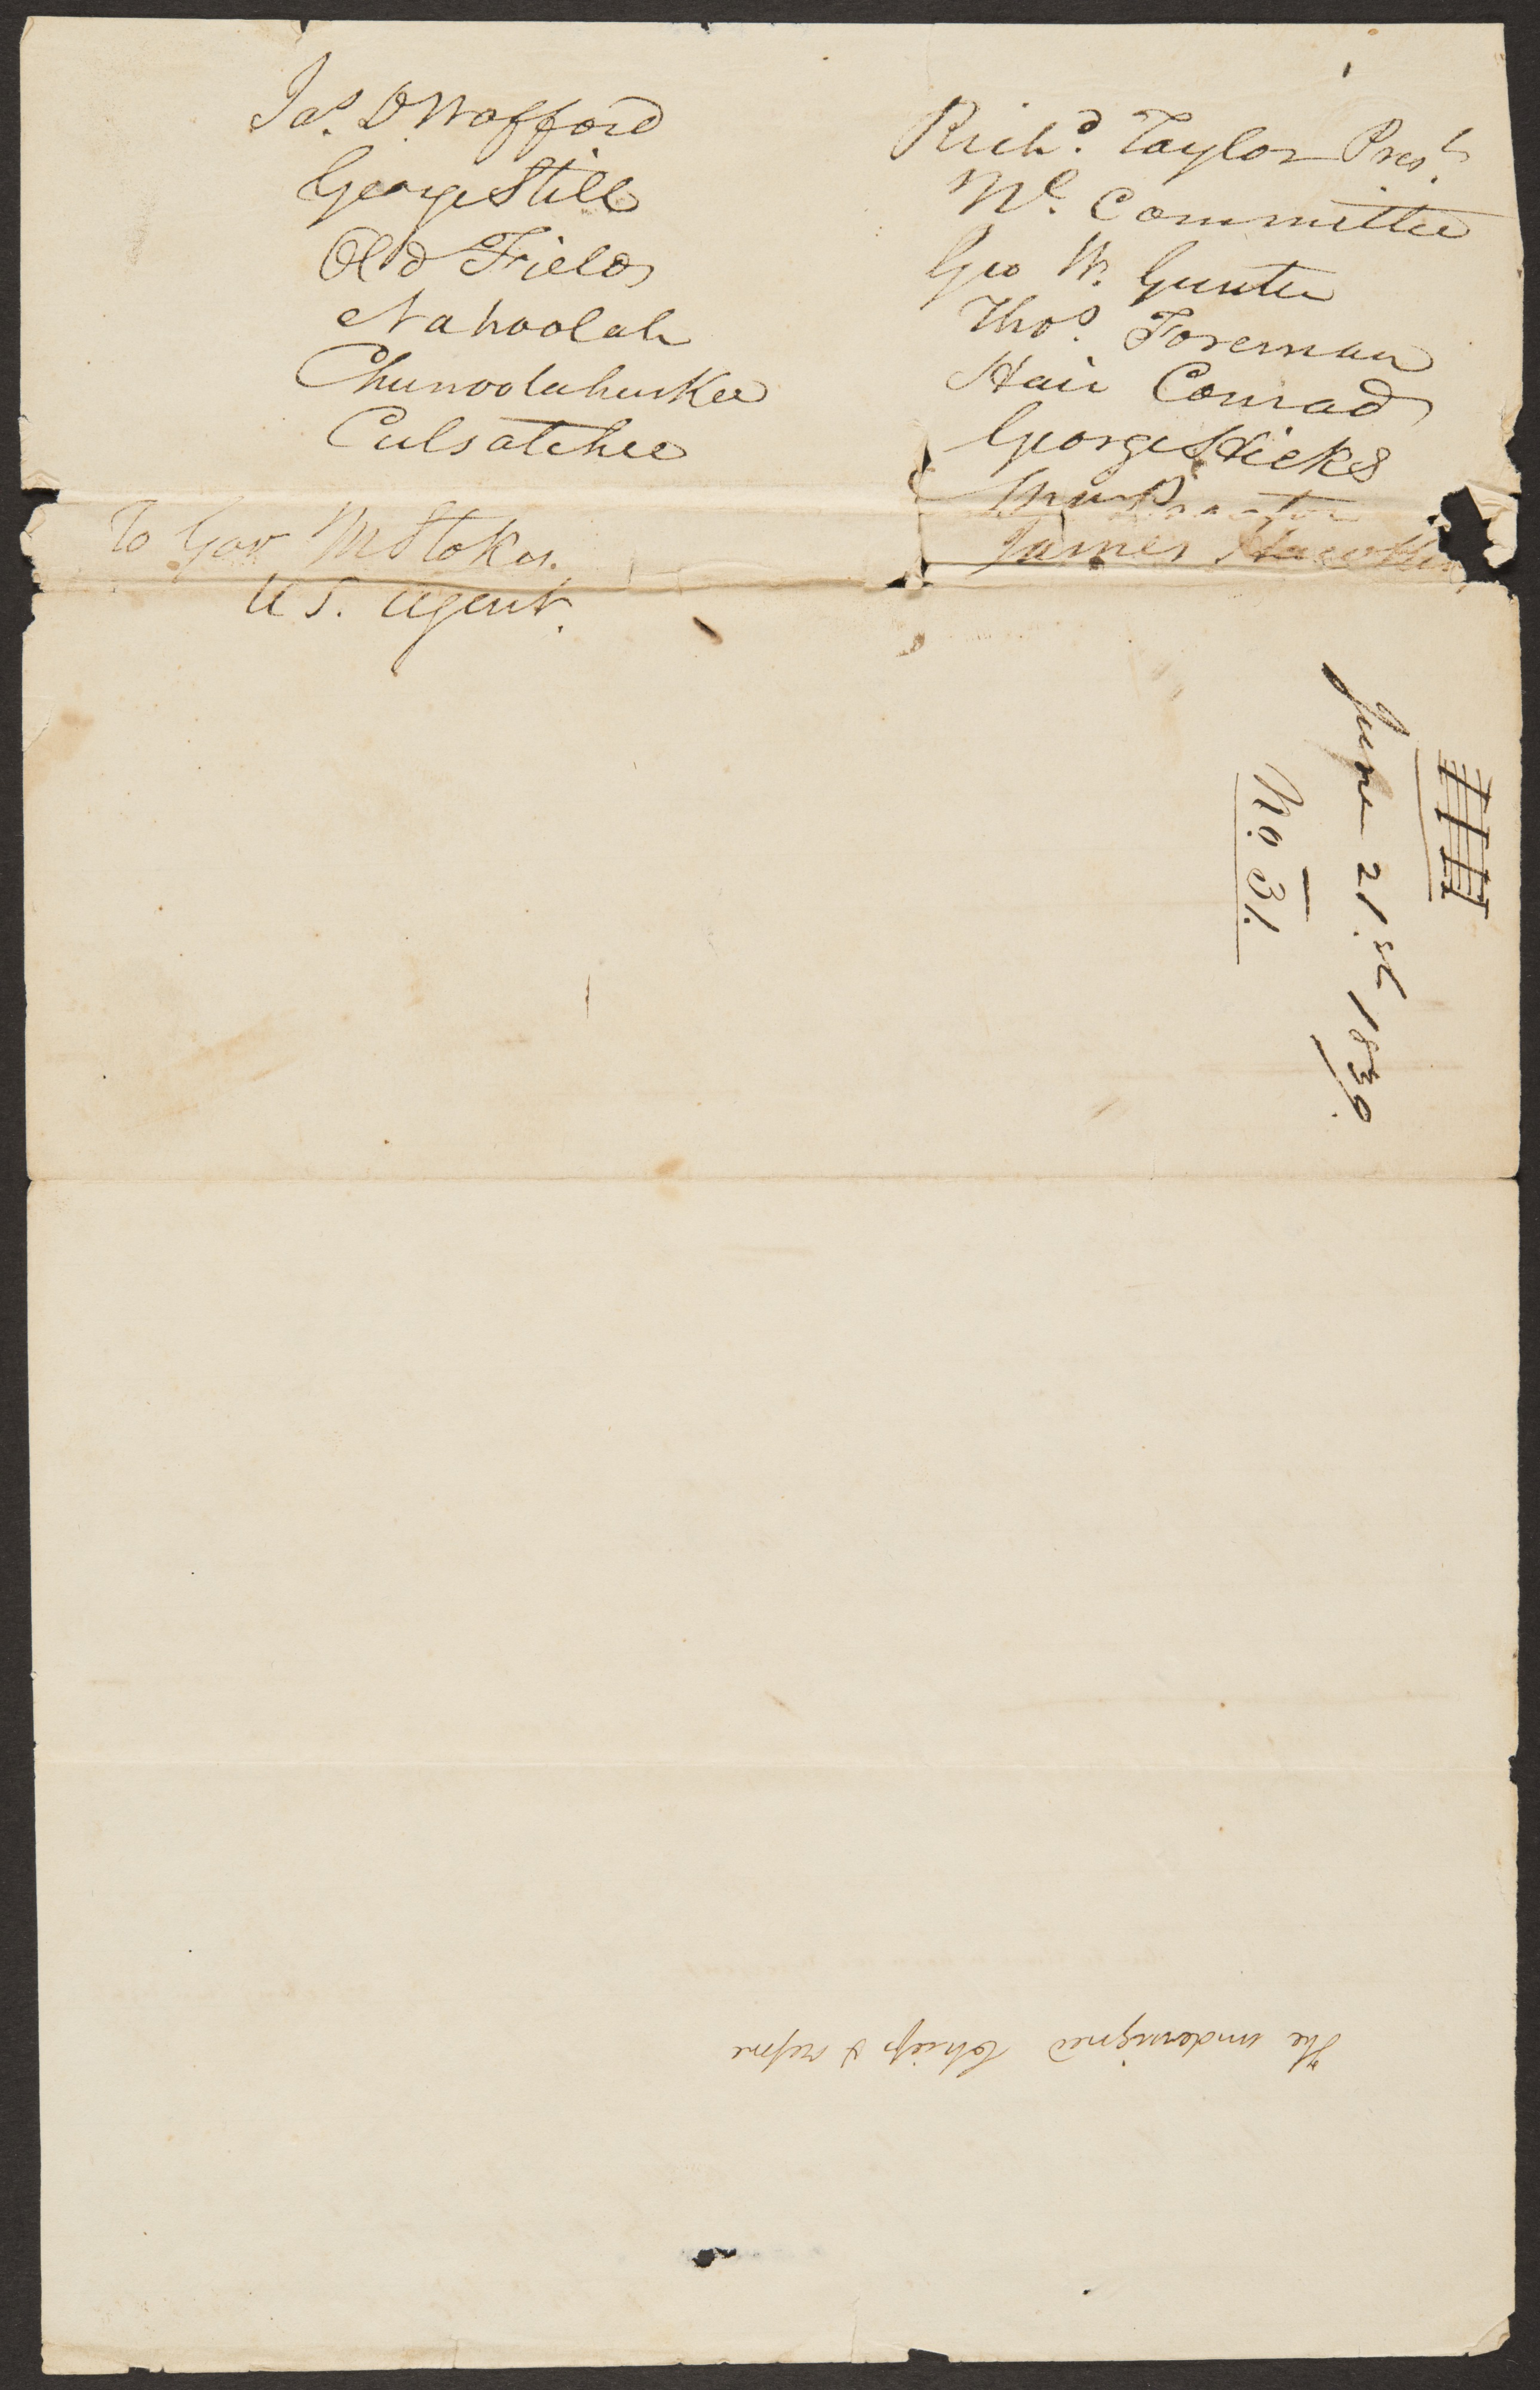 Jas. D. Wofford
George Still
Old Fields
Nahoolah
Chunoolahuskee
Culsatehee
To Gov M Stokes.
U S. Agent.
Richd. Taylor Prest.
Nl. Committee
Geo W. Gunter
Thos. Foreman
Hair Conrad
George Hicks
James
June 21.st 1839.
No 31.
The undersigned Chiefs &